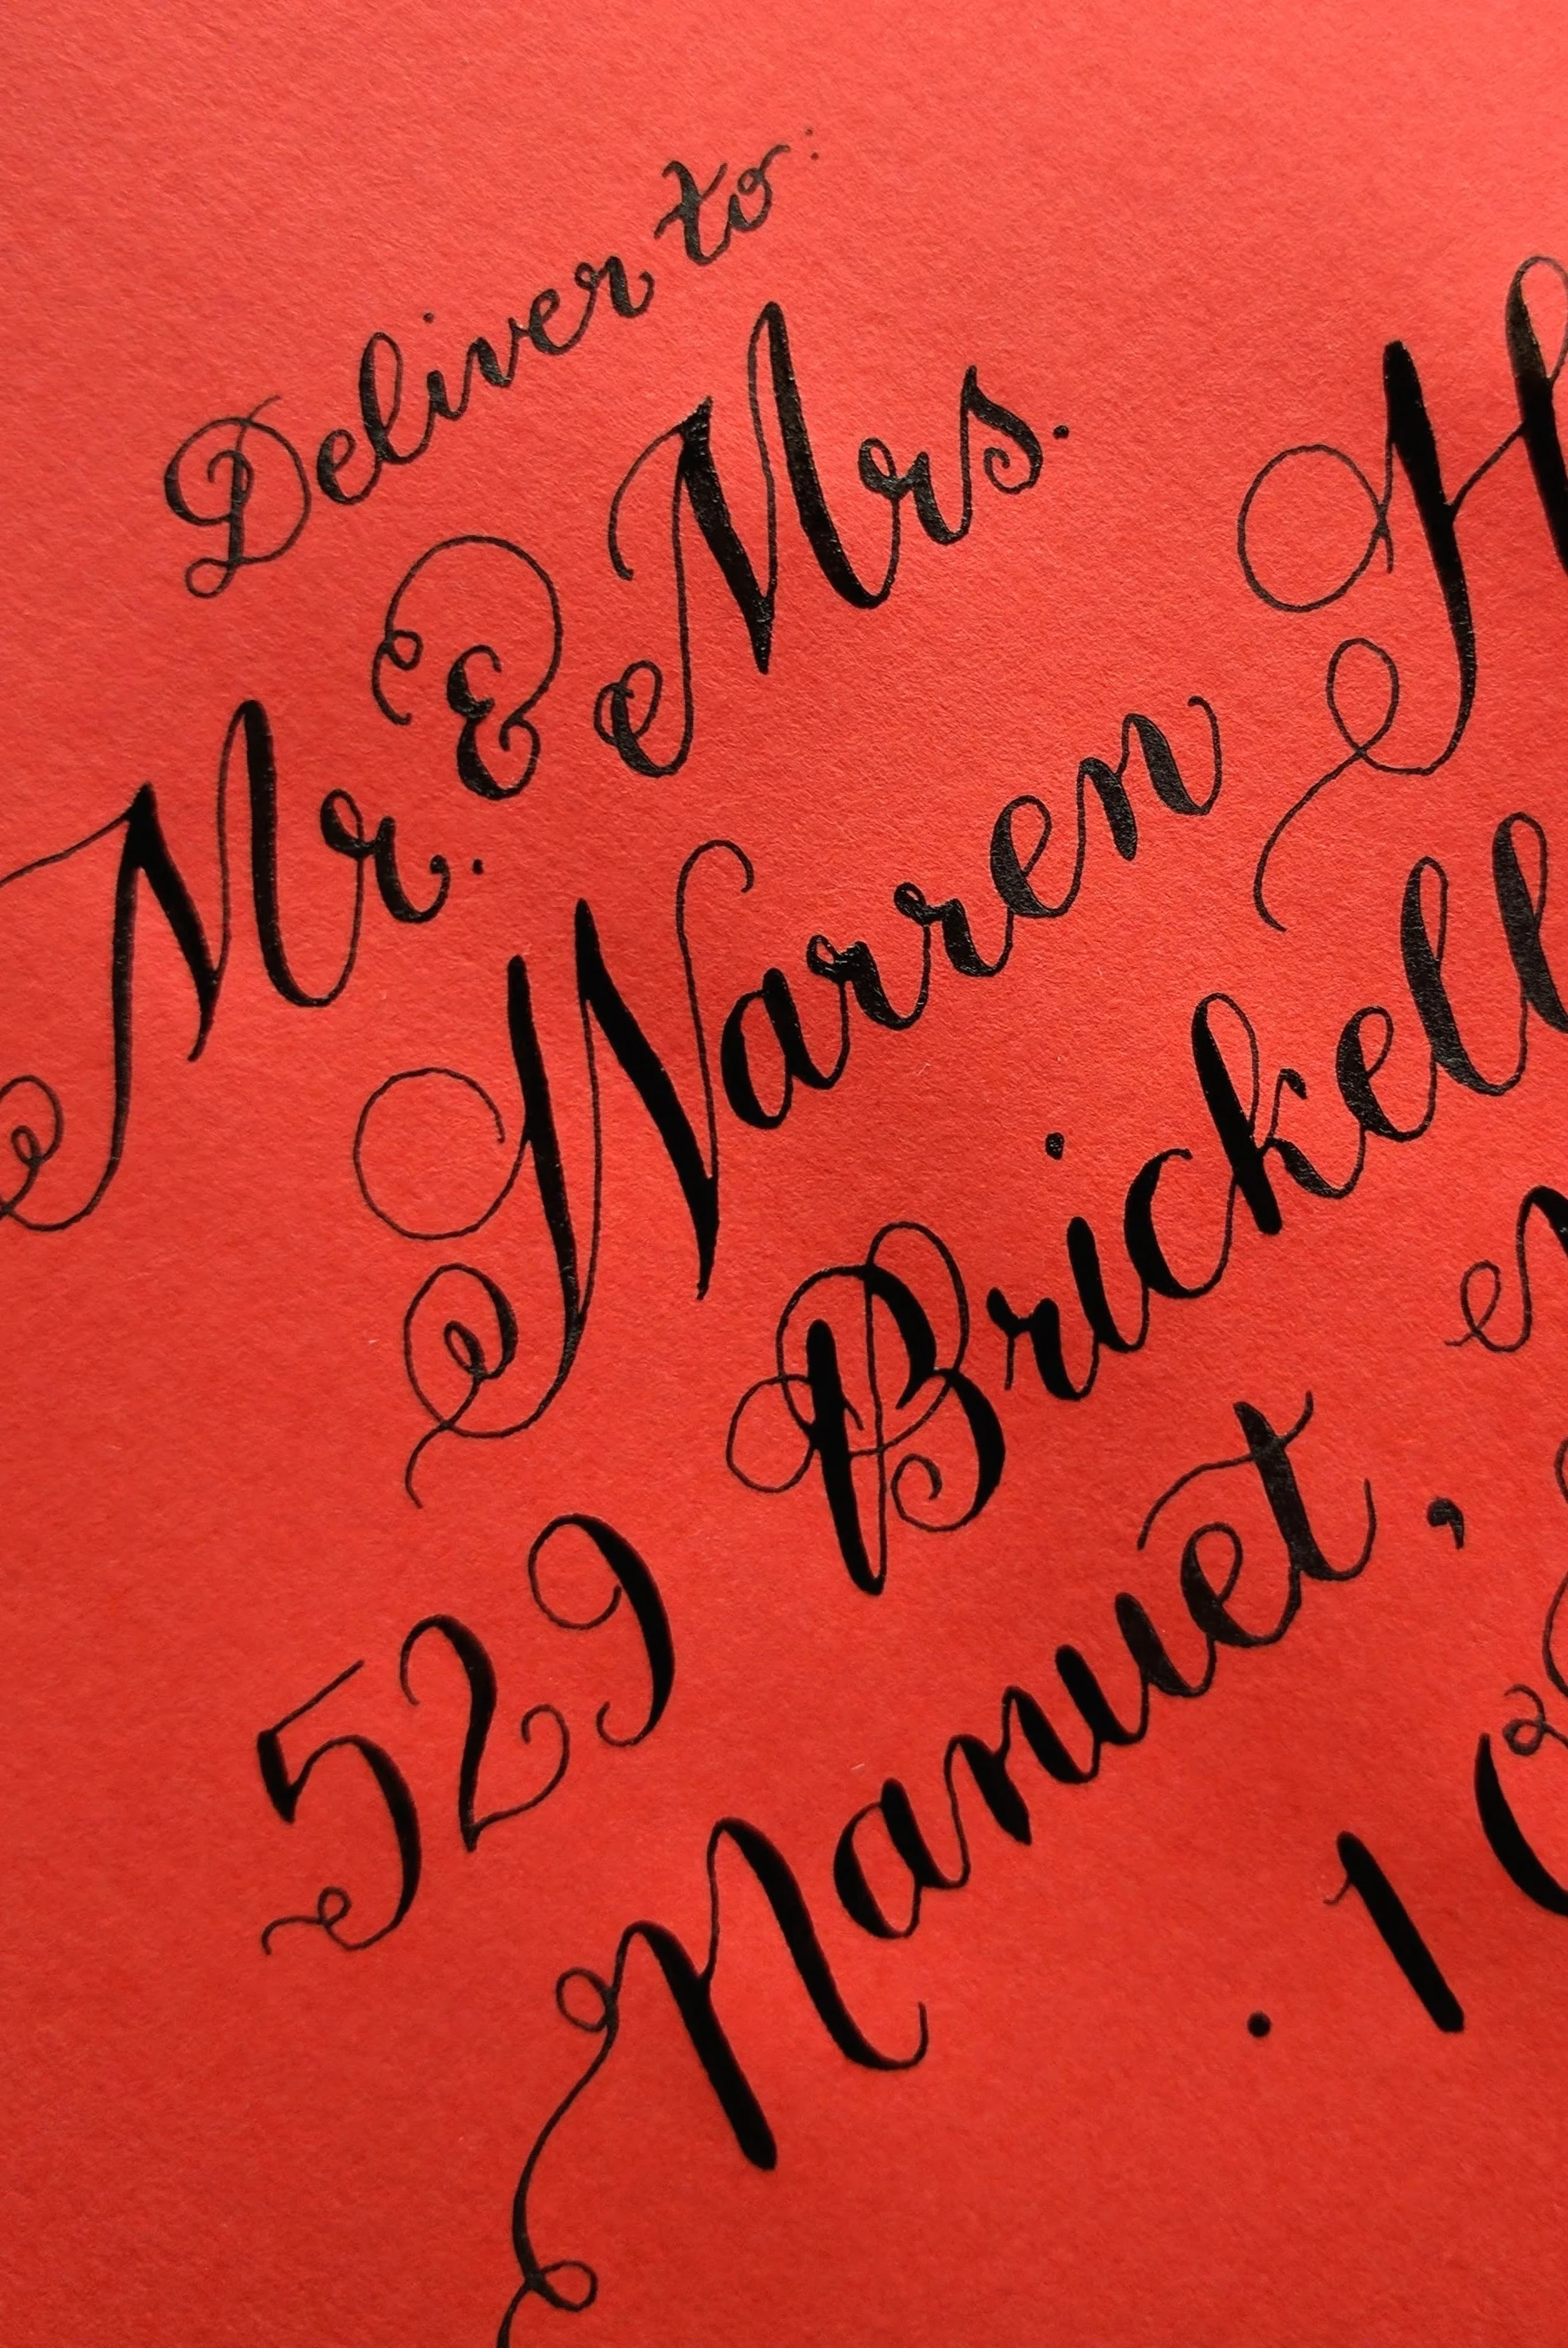 Deliver to:
Mr. & Mrs.
Warren H
529 Brickell
Nanuet,
. 10